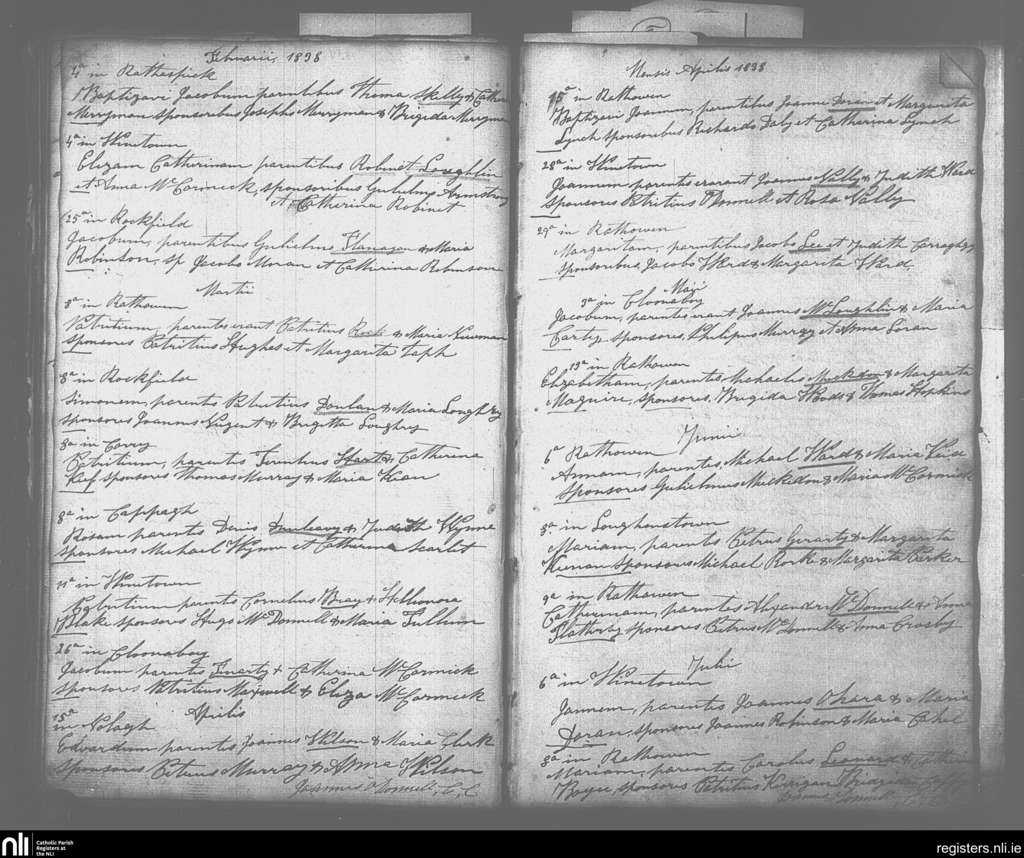 Februarii, 1838
4a in Rathespick
Baptizavi Jacobum parentibus Thoma Skelly & Cathe
Merryman sponsoribus Josepho Merryman & Brigida Merryman
4a in Winetown
Elizam Catherinam parentibus Robinet Loughlin
et Anna McCormick, sponsoribus Gulielmo Armstrong
et Catherina Robinet
25a in Rockfield
Jacobum, parentibus Gulielmo Flanagan & Maria
Robinson, sp Jacobo Moran et Catherina Robinson
Martii
in Rathowen
Patritium, parentes erant Patritius & Maria Newman
sponsores Patritius Hughes et Margarita
8a in Rockfield
Simonem, parentes Patritius Donlan & Maria Loughry
sponsores Joannes Nugent & Brigitta Loughry
in Correy
Patritium, parentes & Catherina
Keif sponsores Thomas Murray & Maria Kean
8a in Cappagh
Rosam parentes Denis Dunleavy & Judith Wynne
sponsores Michael Wynn et Catherina Scarlit
11a in Winetown
Patritium parentes Cornelius Bray & Hellionora
Blake sponsores Hugo McDonnell & Maria
26a in Cloonaboy
Jacobum parentes & Catherina McCormick
sponsores Patritius Maxwell & Eliza McCormick
Aprilis
15a
in
Edvardum, parentes Joannes Wilson & Maria Clark
sponsores Petrus Murray & Anna Wilson
Joannes O'Donnell, C,C,
Mensis Aprilis 1838
15a in Rathowen
Baptizavi Joannem, parentibus Joanne Doran et Margarita
Lynch sponsoribus Richardo Daly et Catherina Lynch
28a in Winetown
Joannem, parentes erant Joannes Nally & Judith Ward
sponsores Patritius O'Donnell et Rosa Nally
29a in Rathowen
Margaritam, parentibus Jacobo Lee et Judith Carraghy
sponsoribus, Jacobo Ward & Margarita Ward,
Maji
3a in Cloonaboy
Jacobum, parentes erant Joannes McLoughlin & Maria
Carty sponsores, Philipus Murray et Anna Doran
13a in Rathowen
Elizabetham, parentes Michaelis Muckedon & Margarita
Maguire, sponsores, Brigida Woods & Thomas Hopkins
Junii
6a Rathowen
Annam, parentes, Michael Ward & Maria
sponsores Gulielmus Muckedon & Maria McCormick
3a in Loughanstown
Mariam, parentes Petrus Gerarty & Margarita
Kienan sponsores Michael Rorke & Margarita Carker
9a in Rathowen
Catherinam, parentes Alexander McDonnell & Anna
Flatherty sponsores Petrus McDonnell & Anna Crosby
Julii
6a in Winetown
Jannem, parentes Joannes O'hera & Maria
Doran, sponsores Joannes Robinson & Maria Cahel
8a in Rathowen
Mariam, parentes Carolus Leonard & Catherin
Boyce, sponsores Patritius Kerrigan Brigida
nli
Catholic Parish
Registers at
the NLI
registers.nli.ie